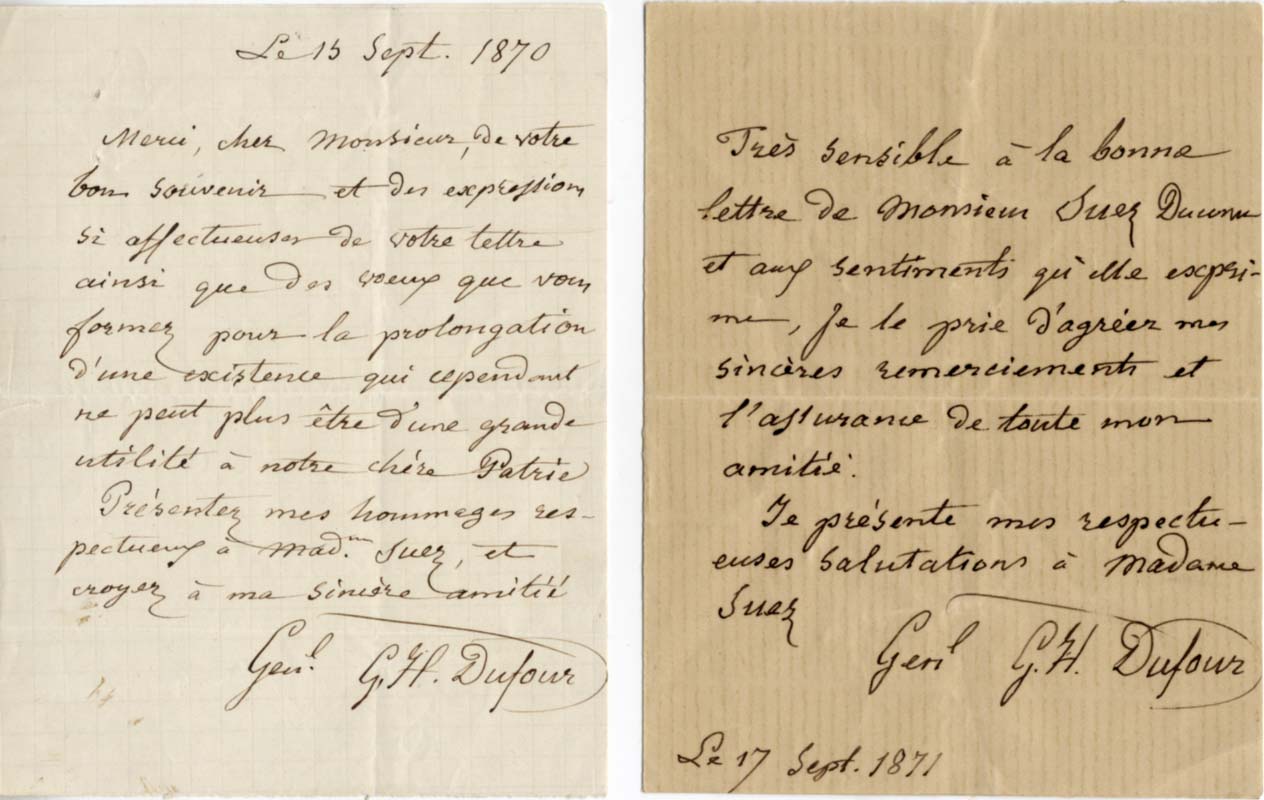 Le 15 Sept. 1870
Merci, cher Monsieur, de votre
bon souvenir et des expressions
si affectueuses de votre lettre
ainsi que des voeux que vous
formez pour la prolongation
d'une existence qui cependant
ne peut plus être d'une grande
utilité à notre chère Patrie
Présentez mes hommages res-
pectueux à Mad.me Suez, et
croyez à ma sincère amitié
Genl. G.H. Dufour
Très sensible à la bonne
lettre de Monsieur Suez
et aux sentiments qu'elle expri-
me, Je le prie d'agréer mes
sincères remerciements et
l'assurance de toute mon
amitié.
Je présente mes respectu-
euses salutations à Madame
Suez
Genl G.H. Dufour
Le 17 Sept. 1871